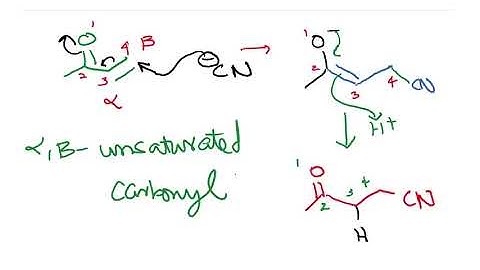 1
O
4 B
2 3
⊖CN
α
1
O
2
3
4
CN
H+
α,B- unsaturated
carbonyl
1
O
2 3 4
CN
H